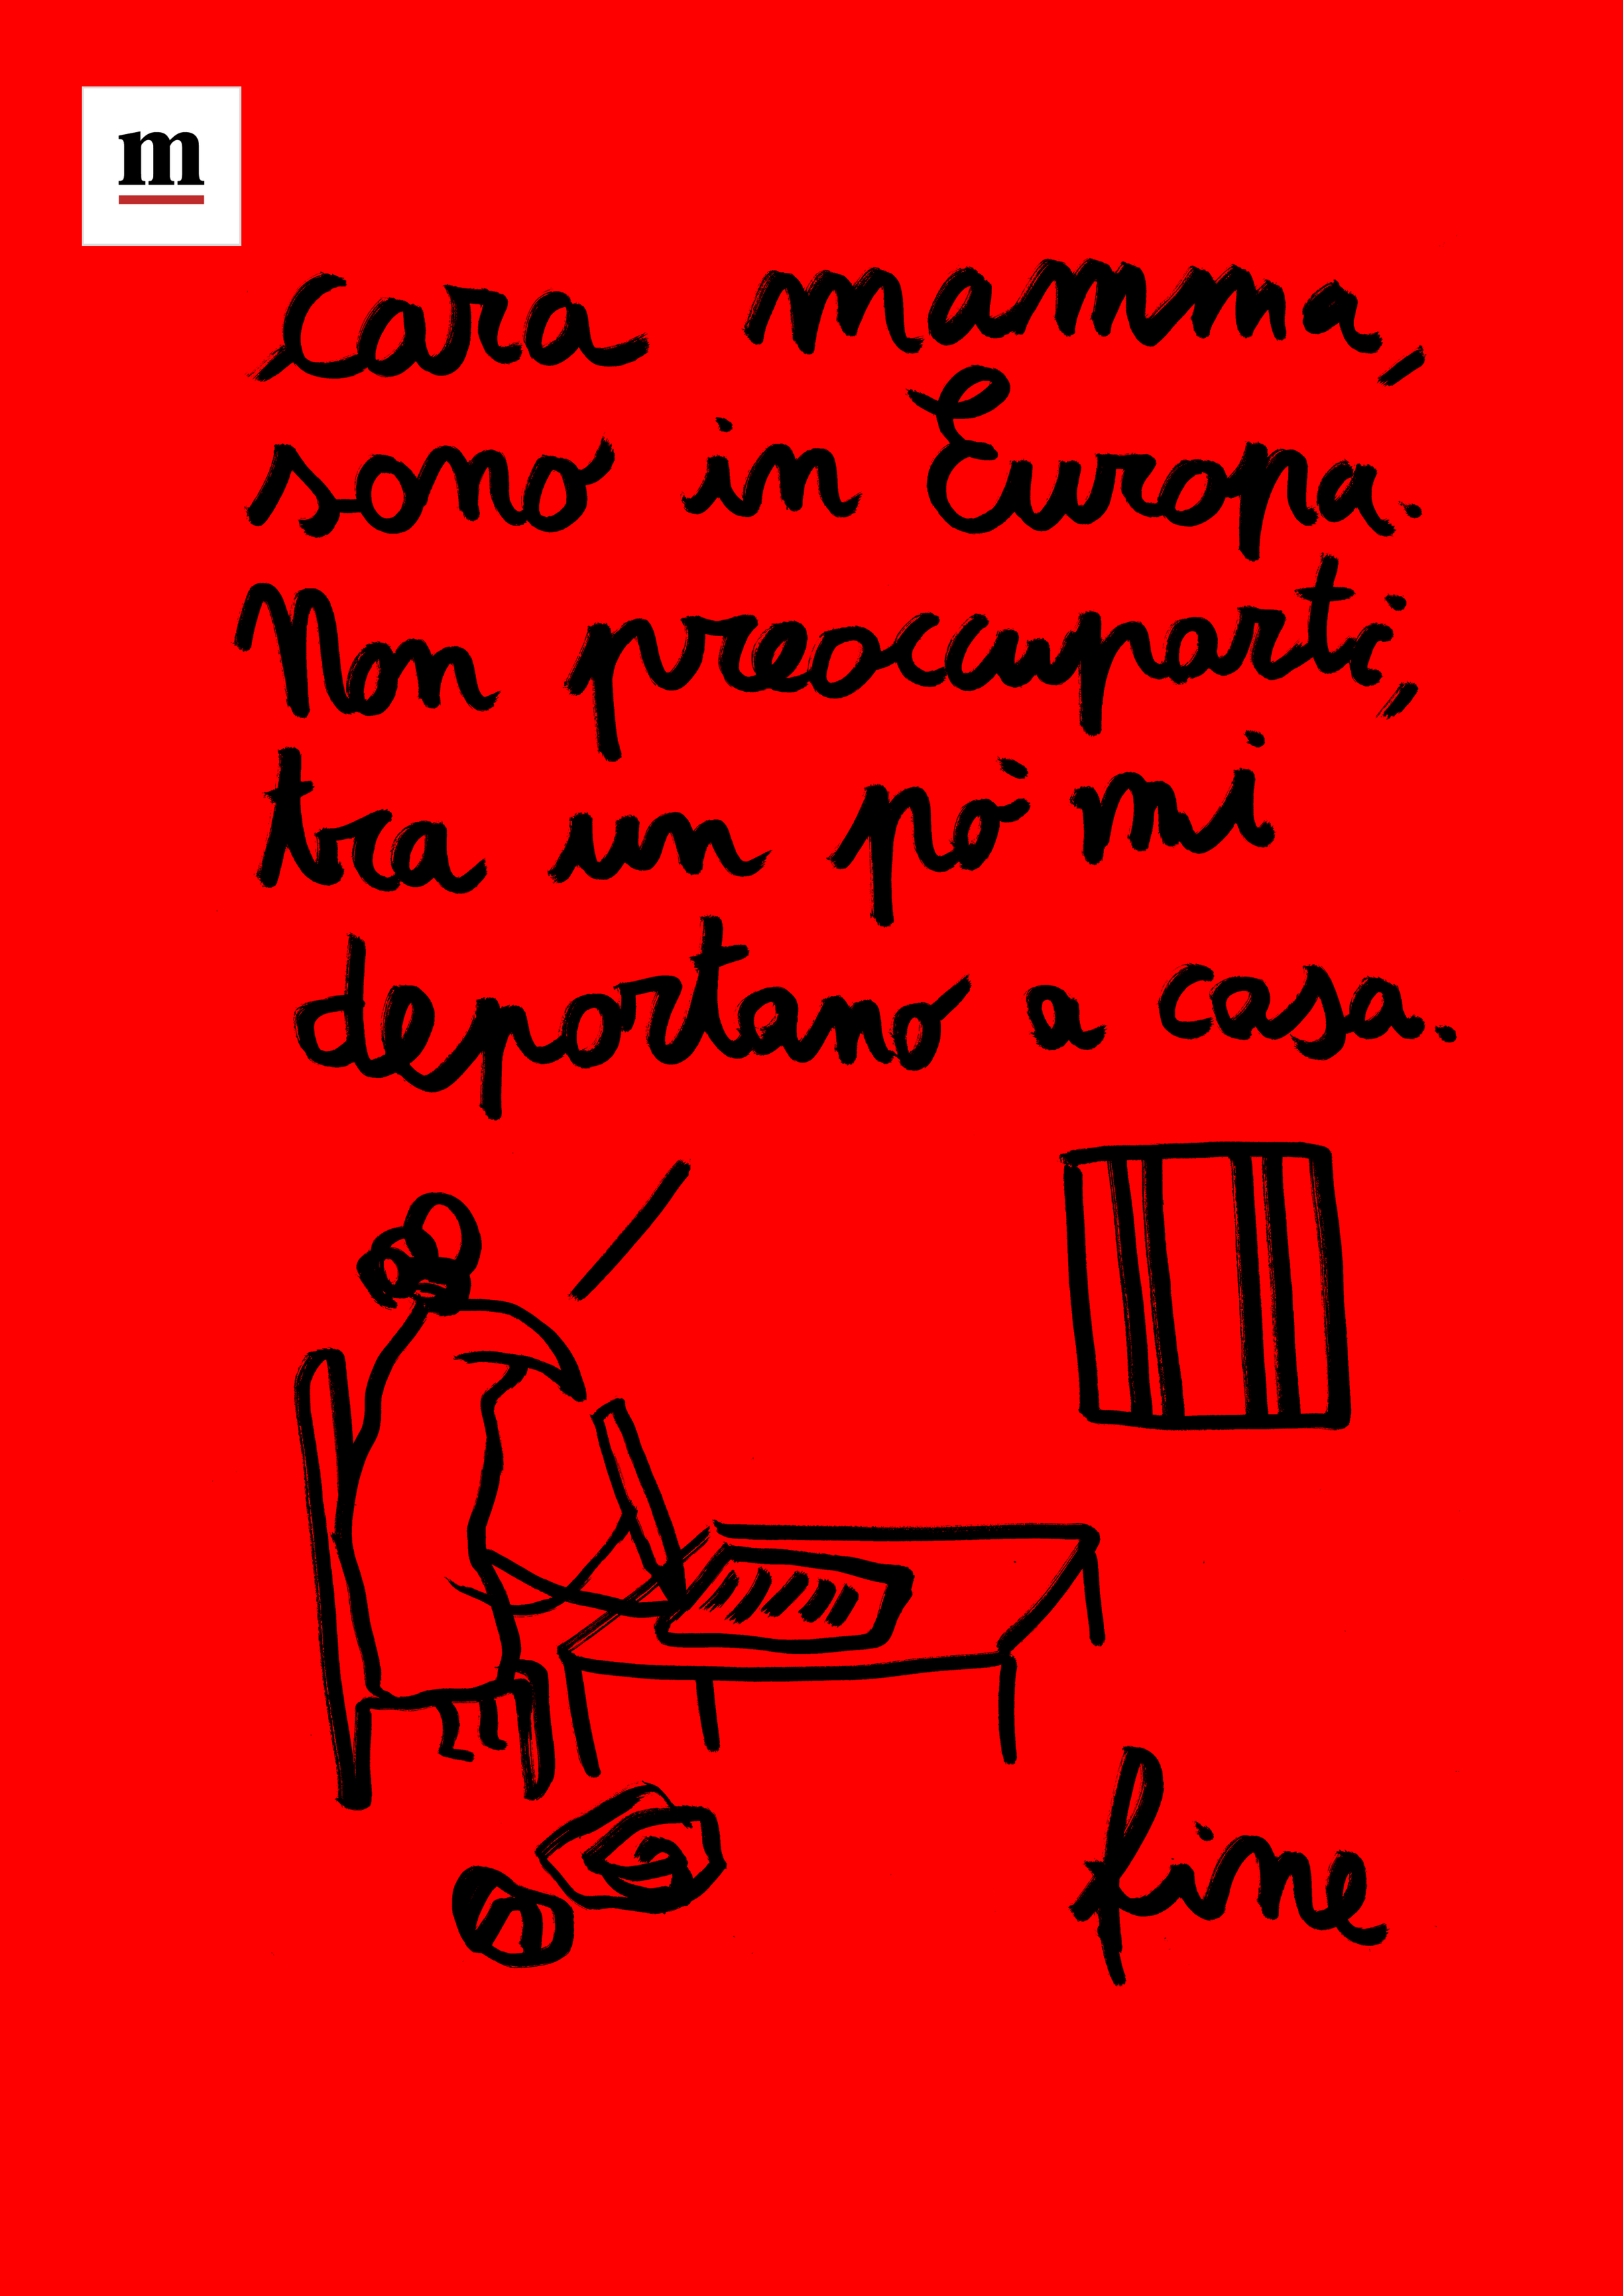 m
cara mamma,
sono in Europa.
Non preoccuparti,
tra un po' mi
deportano a casa.
fine